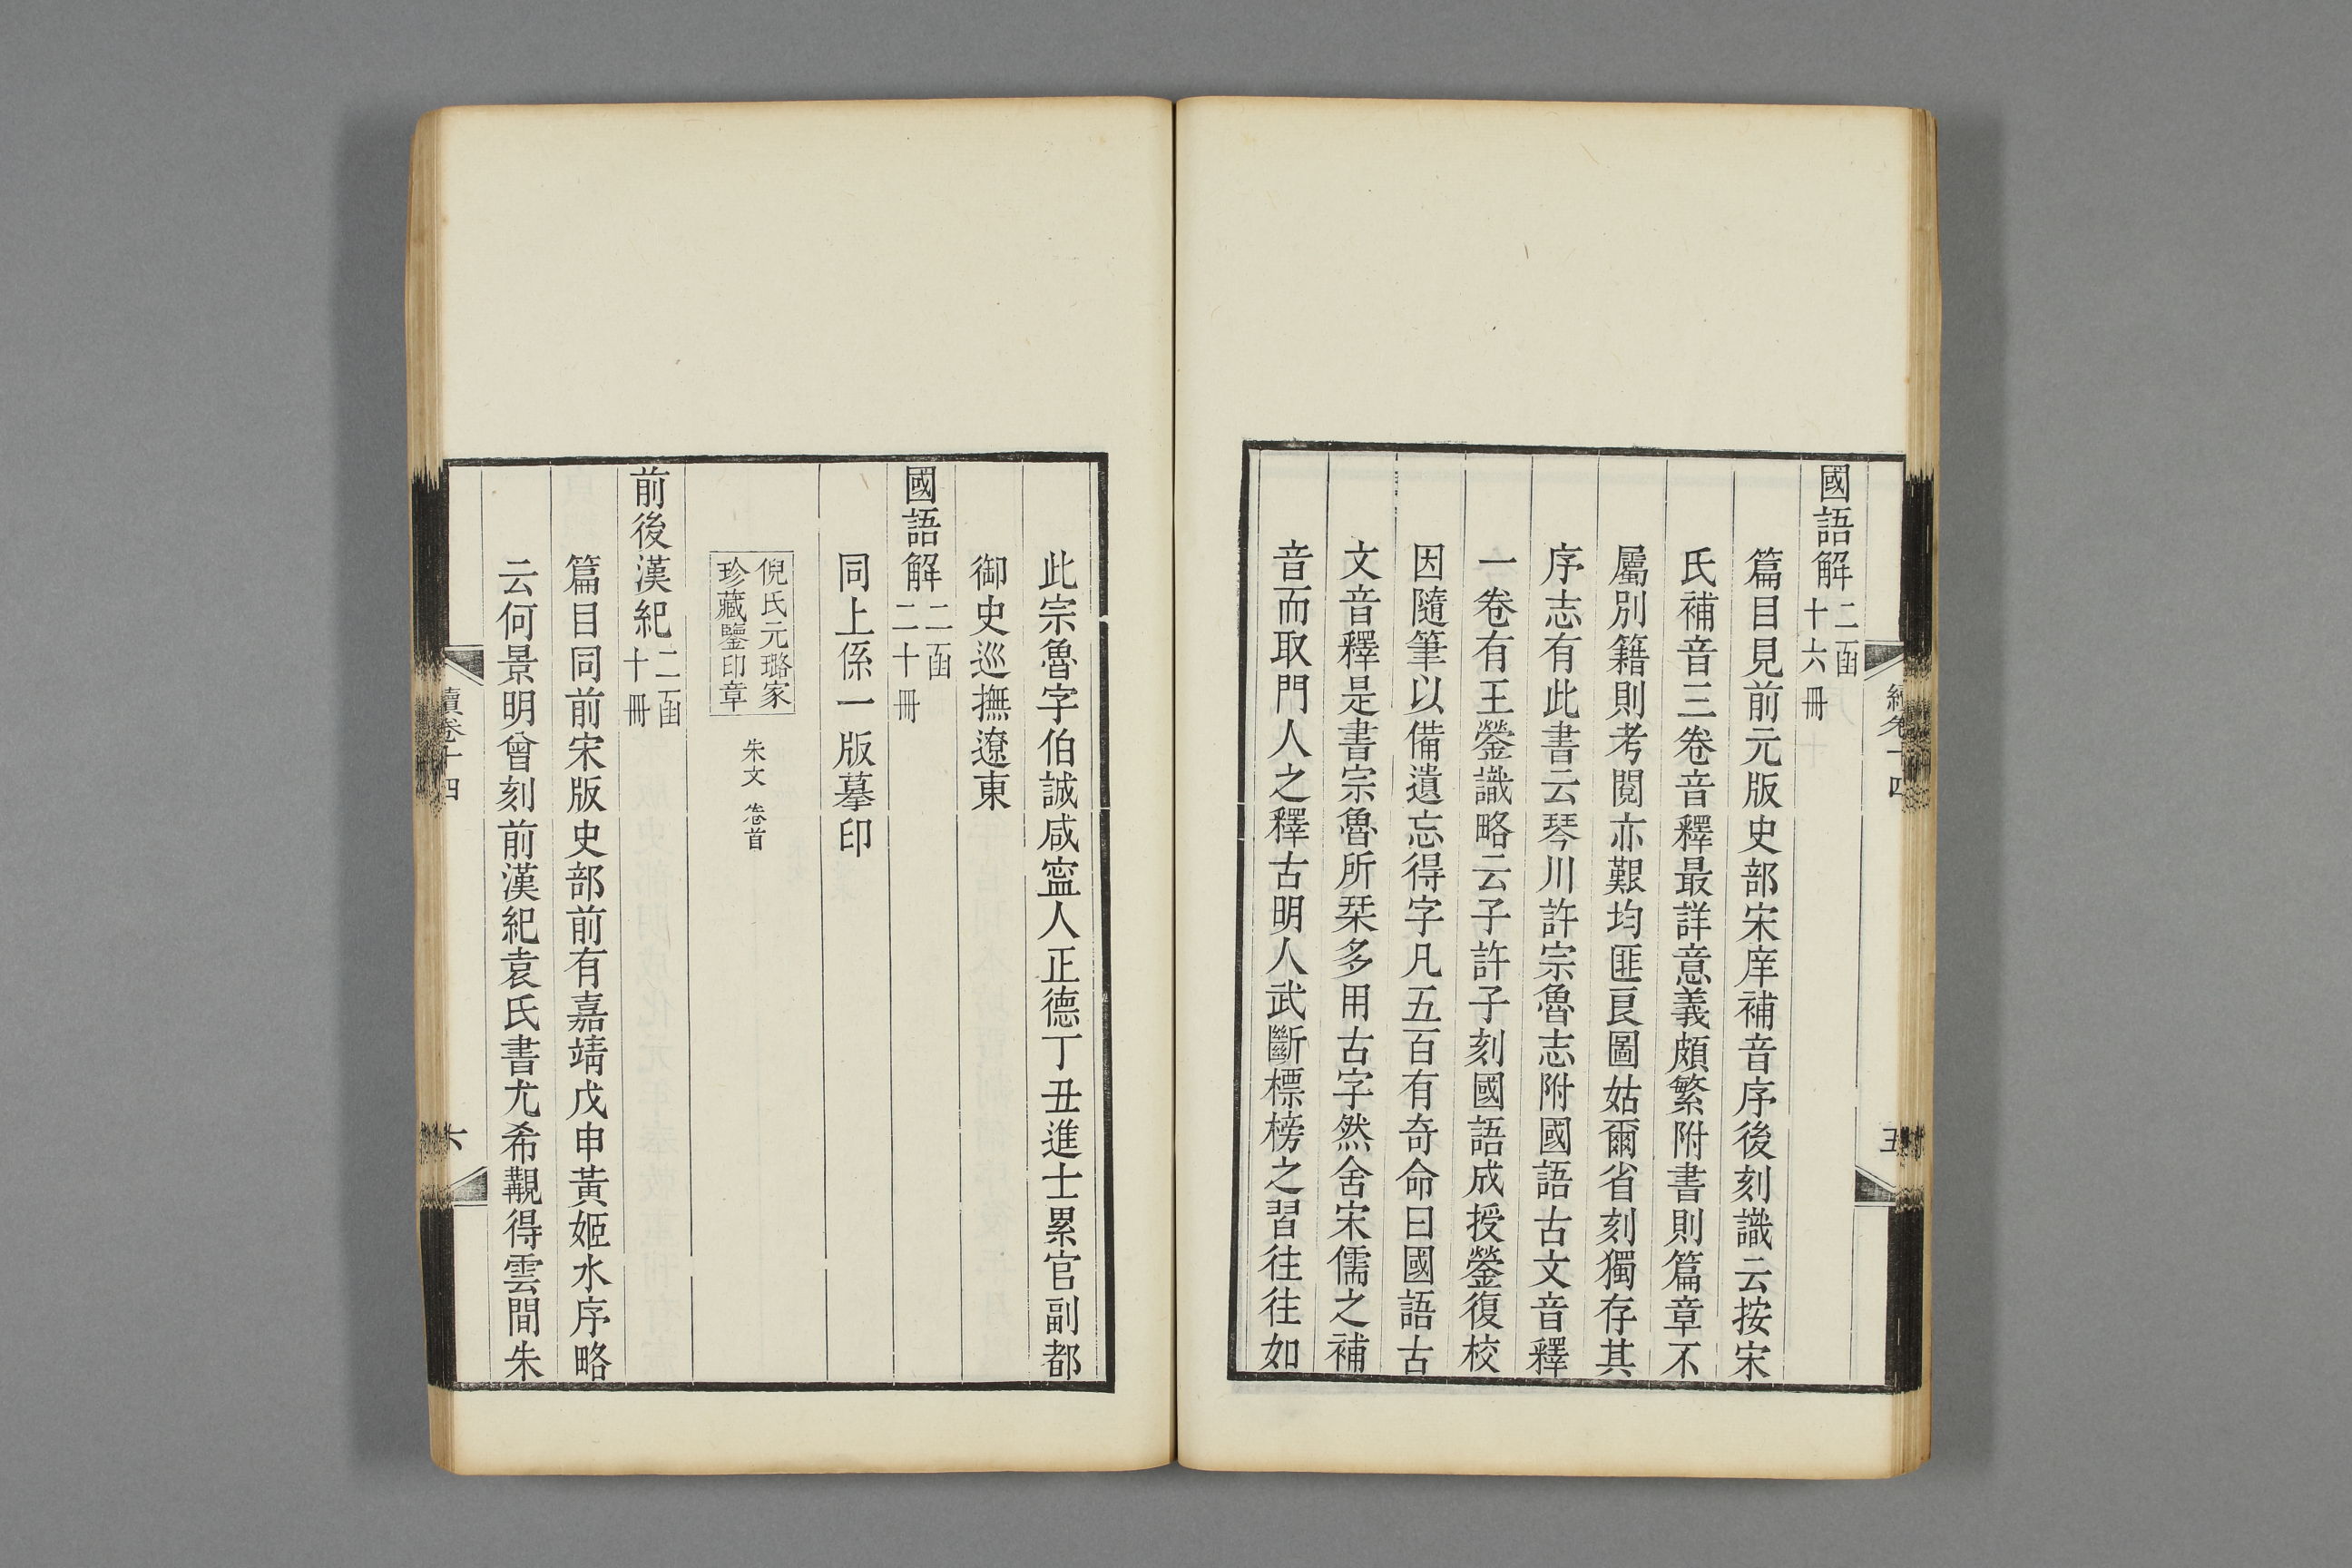 國語解二函十六冊
篇目見前元版史部宋庠補音序後刻識云按宋
氏補音三卷音釋最詳意義頗繁附書則篇章不
屬別籍則考閱亦艱均匪良圖姑爾省刻獨存其
序志有此書云琴川許宗魯志附國語古文音釋
一卷有王鎣識略云子許子刻國語成授鎣復校
因隨筆以備遺忘得字凡五百有奇命曰國語古
文音釋是書宗魯所栞多用古字然舍宋儒之補
音而取門人之釋古明人武斷標榜之習往往如
此宗魯字伯誠咸寍人正德丁丑進士累官副都
御史巡撫遼東
國語解二函二十冊
同上係一版摹印
倪氏元璐家珍藏鑒印章 朱文 卷首
前後漢紀二函十冊
篇目同前宋版史部前有嘉靖戊申黃姬水序略
云何景明曾刻前漢紀袁氏書尤希覯得雲間朱
續卷十四
六